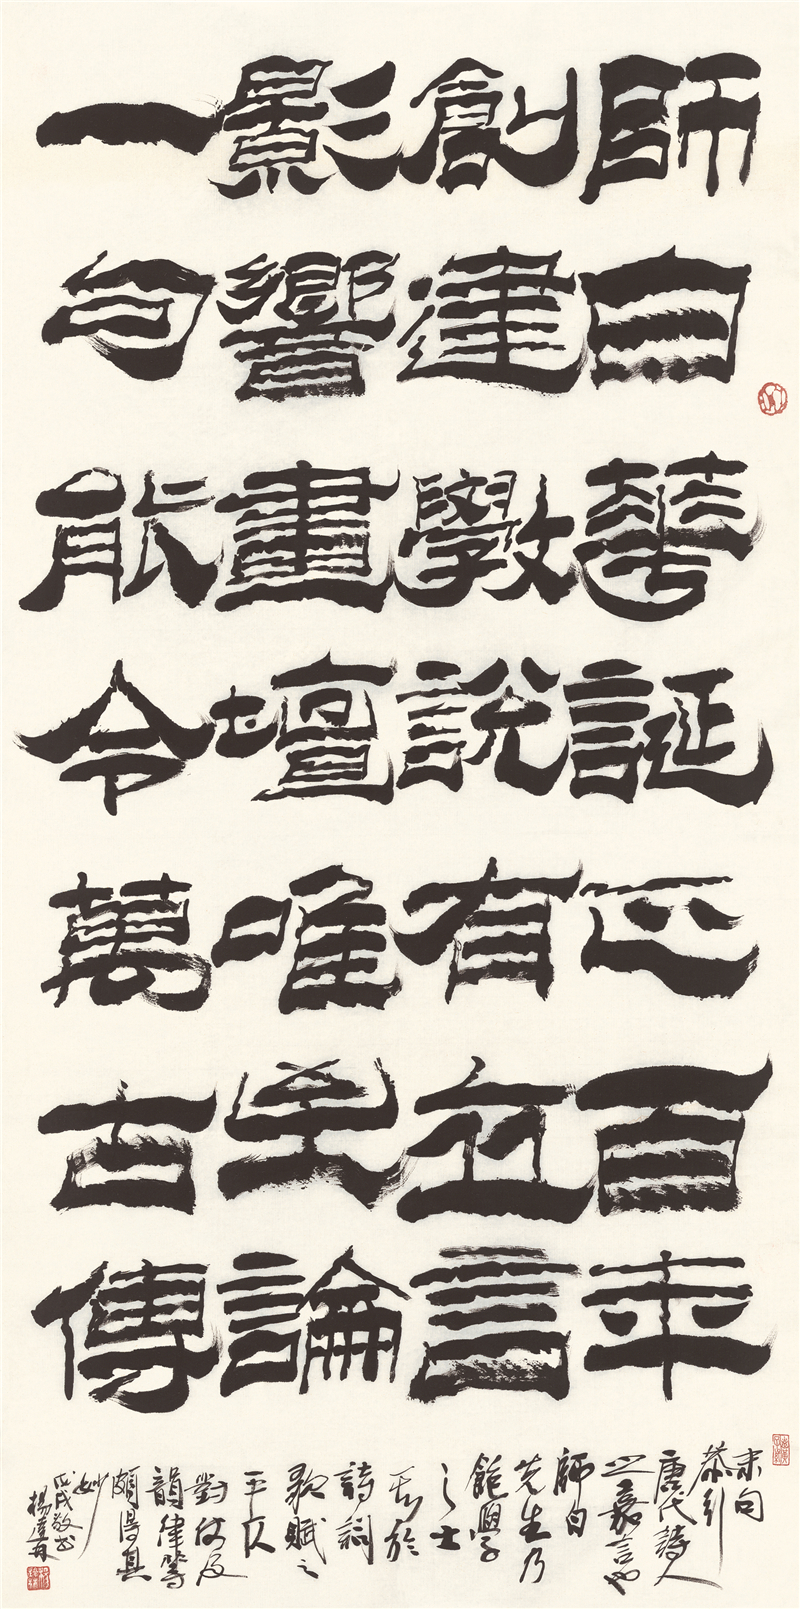 師白華誕正百年
創建斆說有立言
影響畫壇唯論
一句能令萬古傳
末句
恭引
唐代詩人
之嘉言也
師白
先生乃
飽學
之士
於
詩詞
歌賦之
平仄
對仗及
韻律等
頗得其
妙
戊戌敬書
楊